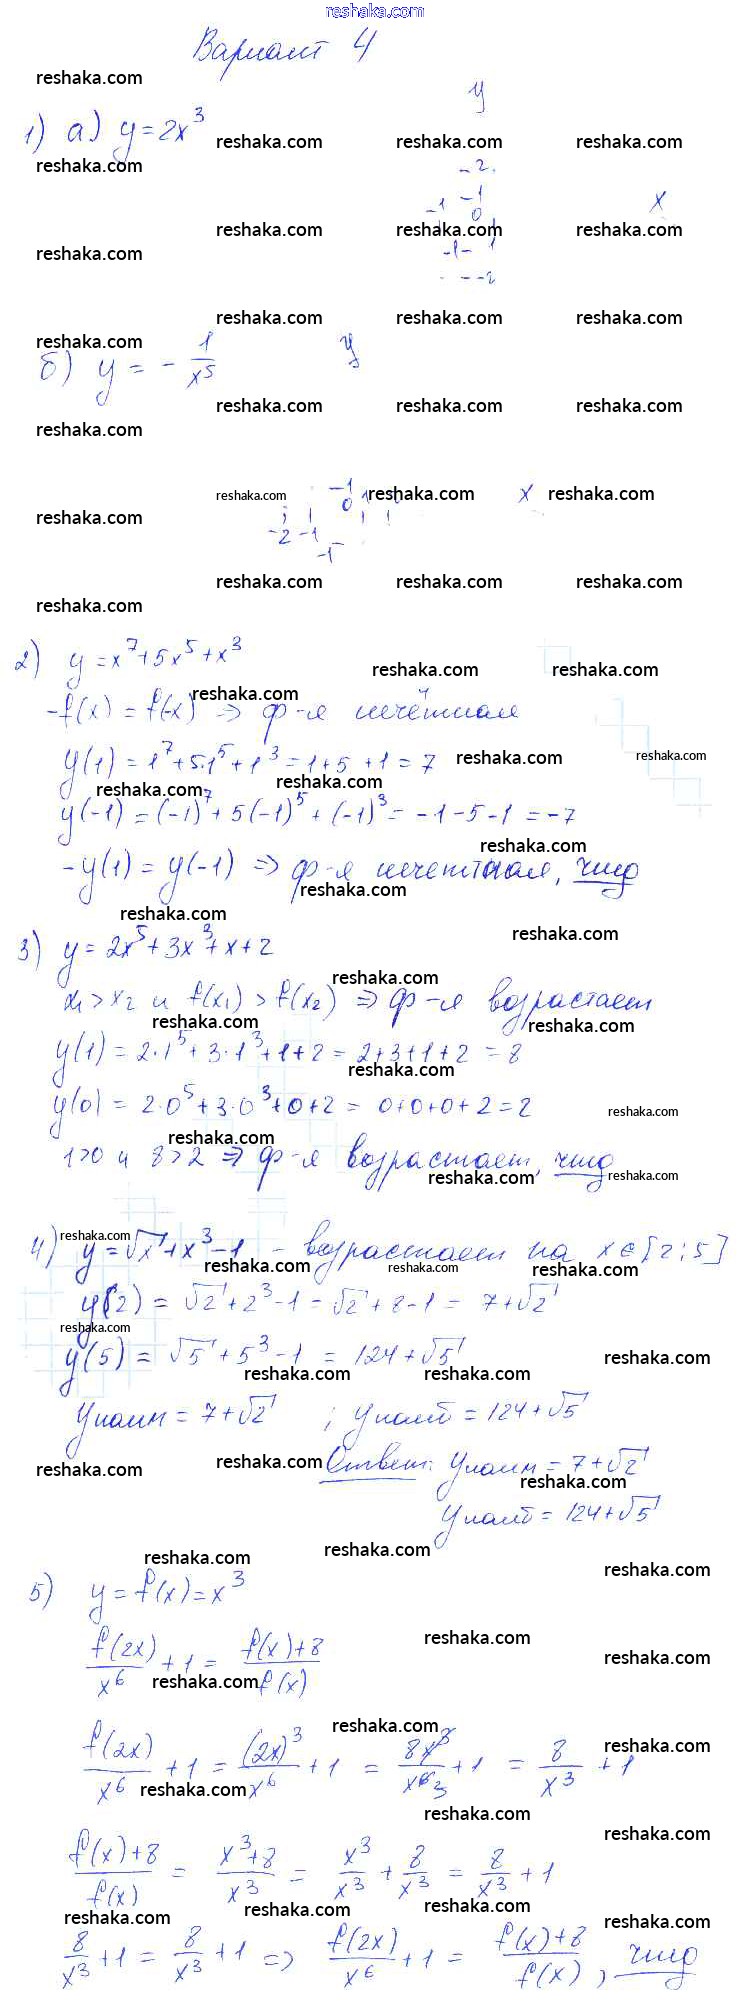 reshaka.com
Вариант 4
1) а) y = 2x³
y
2
-1 -1 x
0
-1 - 1
-2
б) y = - 1/x⁵
y
-1 x
0 1
-2 -1
-1
2) y = x⁷ + 5x⁵ + x³
-f(x) = f(-x) => ф-я нечётная
y(1) = 1⁷ + 5·1⁵ + 1³ = 1 + 5 + 1 = 7
y(-1) = (-1)⁷ + 5(-1)⁵ + (-1)³ = -1 - 5 - 1 = -7
-y(1) = y(-1) => ф-я нечетная, чтд
3) y = 2x⁵ + 3x³ + x + 2
x₁ > x₂ и f(x₁) > f(x₂) => ф-я возрастает
y(1) = 2·1⁵ + 3·1³ + 1 + 2 = 2 + 3 + 1 + 2 = 8
y(0) = 2·0⁵ + 3·0³ + 0 + 2 = 0 + 0 + 0 + 2 = 2
1 > 0 и 8 > 2 => ф-я возрастает, чтд
4) y = √x + x³ - 1 - возрастает на x ∈ [2; 5]
y(2) = √2 + 2³ - 1 = √2 + 8 - 1 = 7 + √2
y(5) = √5 + 5³ - 1 = 124 + √5
Yнаим = 7 + √2 ; Yнаиб = 124 + √5
Ответ: Yнаим = 7 + √2
Yнаиб = 124 + √5
5) y = f(x) = x³
f(2x)/x⁶ + 1 = (f(x) + 8)/f(x)
f(2x)/x⁶ + 1 = (2x)³/x⁶ + 1 = 8x³/x⁶ ³ + 1 = 8/x³ + 1
(f(x) + 8)/f(x) = (x³ + 8)/x³ = x³/x³ + 8/x³ = 8/x³ + 1
8/x³ + 1 = 8/x³ + 1 => f(2x)/x⁶ + 1 = (f(x) + 8)/f(x), чтд